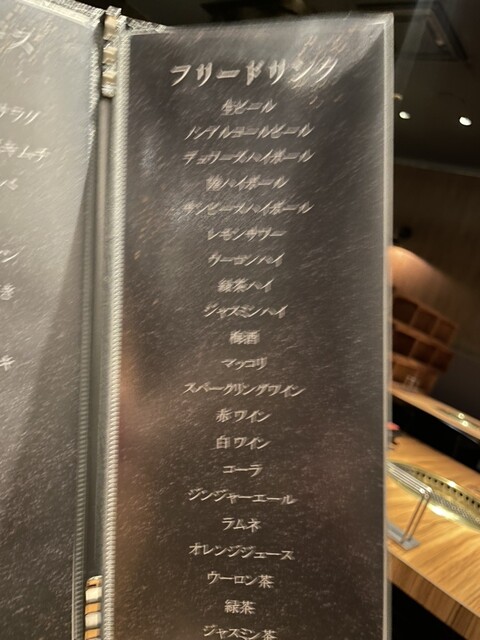 ス
サラダ
キムチ
ン
き
キ
フリードリンク
生ビール
ノンアルコールビール
デュワーズハイボール
ハイボール
ハイボール
レモンサワー
ウーロンハイ
緑茶ハイ
ジャスミンハイ
梅酒
マッコリ
スパークリングワイン
赤ワイン
白ワイン
コーラ
ジンジャーエール
ラムネ
オレンジジュース
ウーロン茶
緑茶
ジャスミン茶